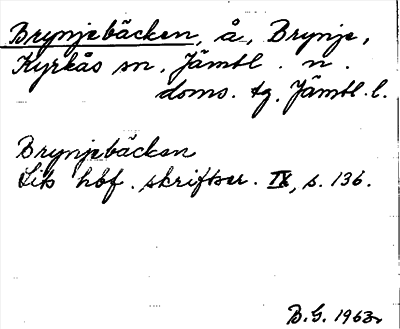 Brynjebäcken, å, Brynje,
Kyrkås sn, Jämtl. n.
doms. tg. Jämtl. l.
Brynjebäcken
hbf. skriftser. IX, s. 136.
B.G. 1963